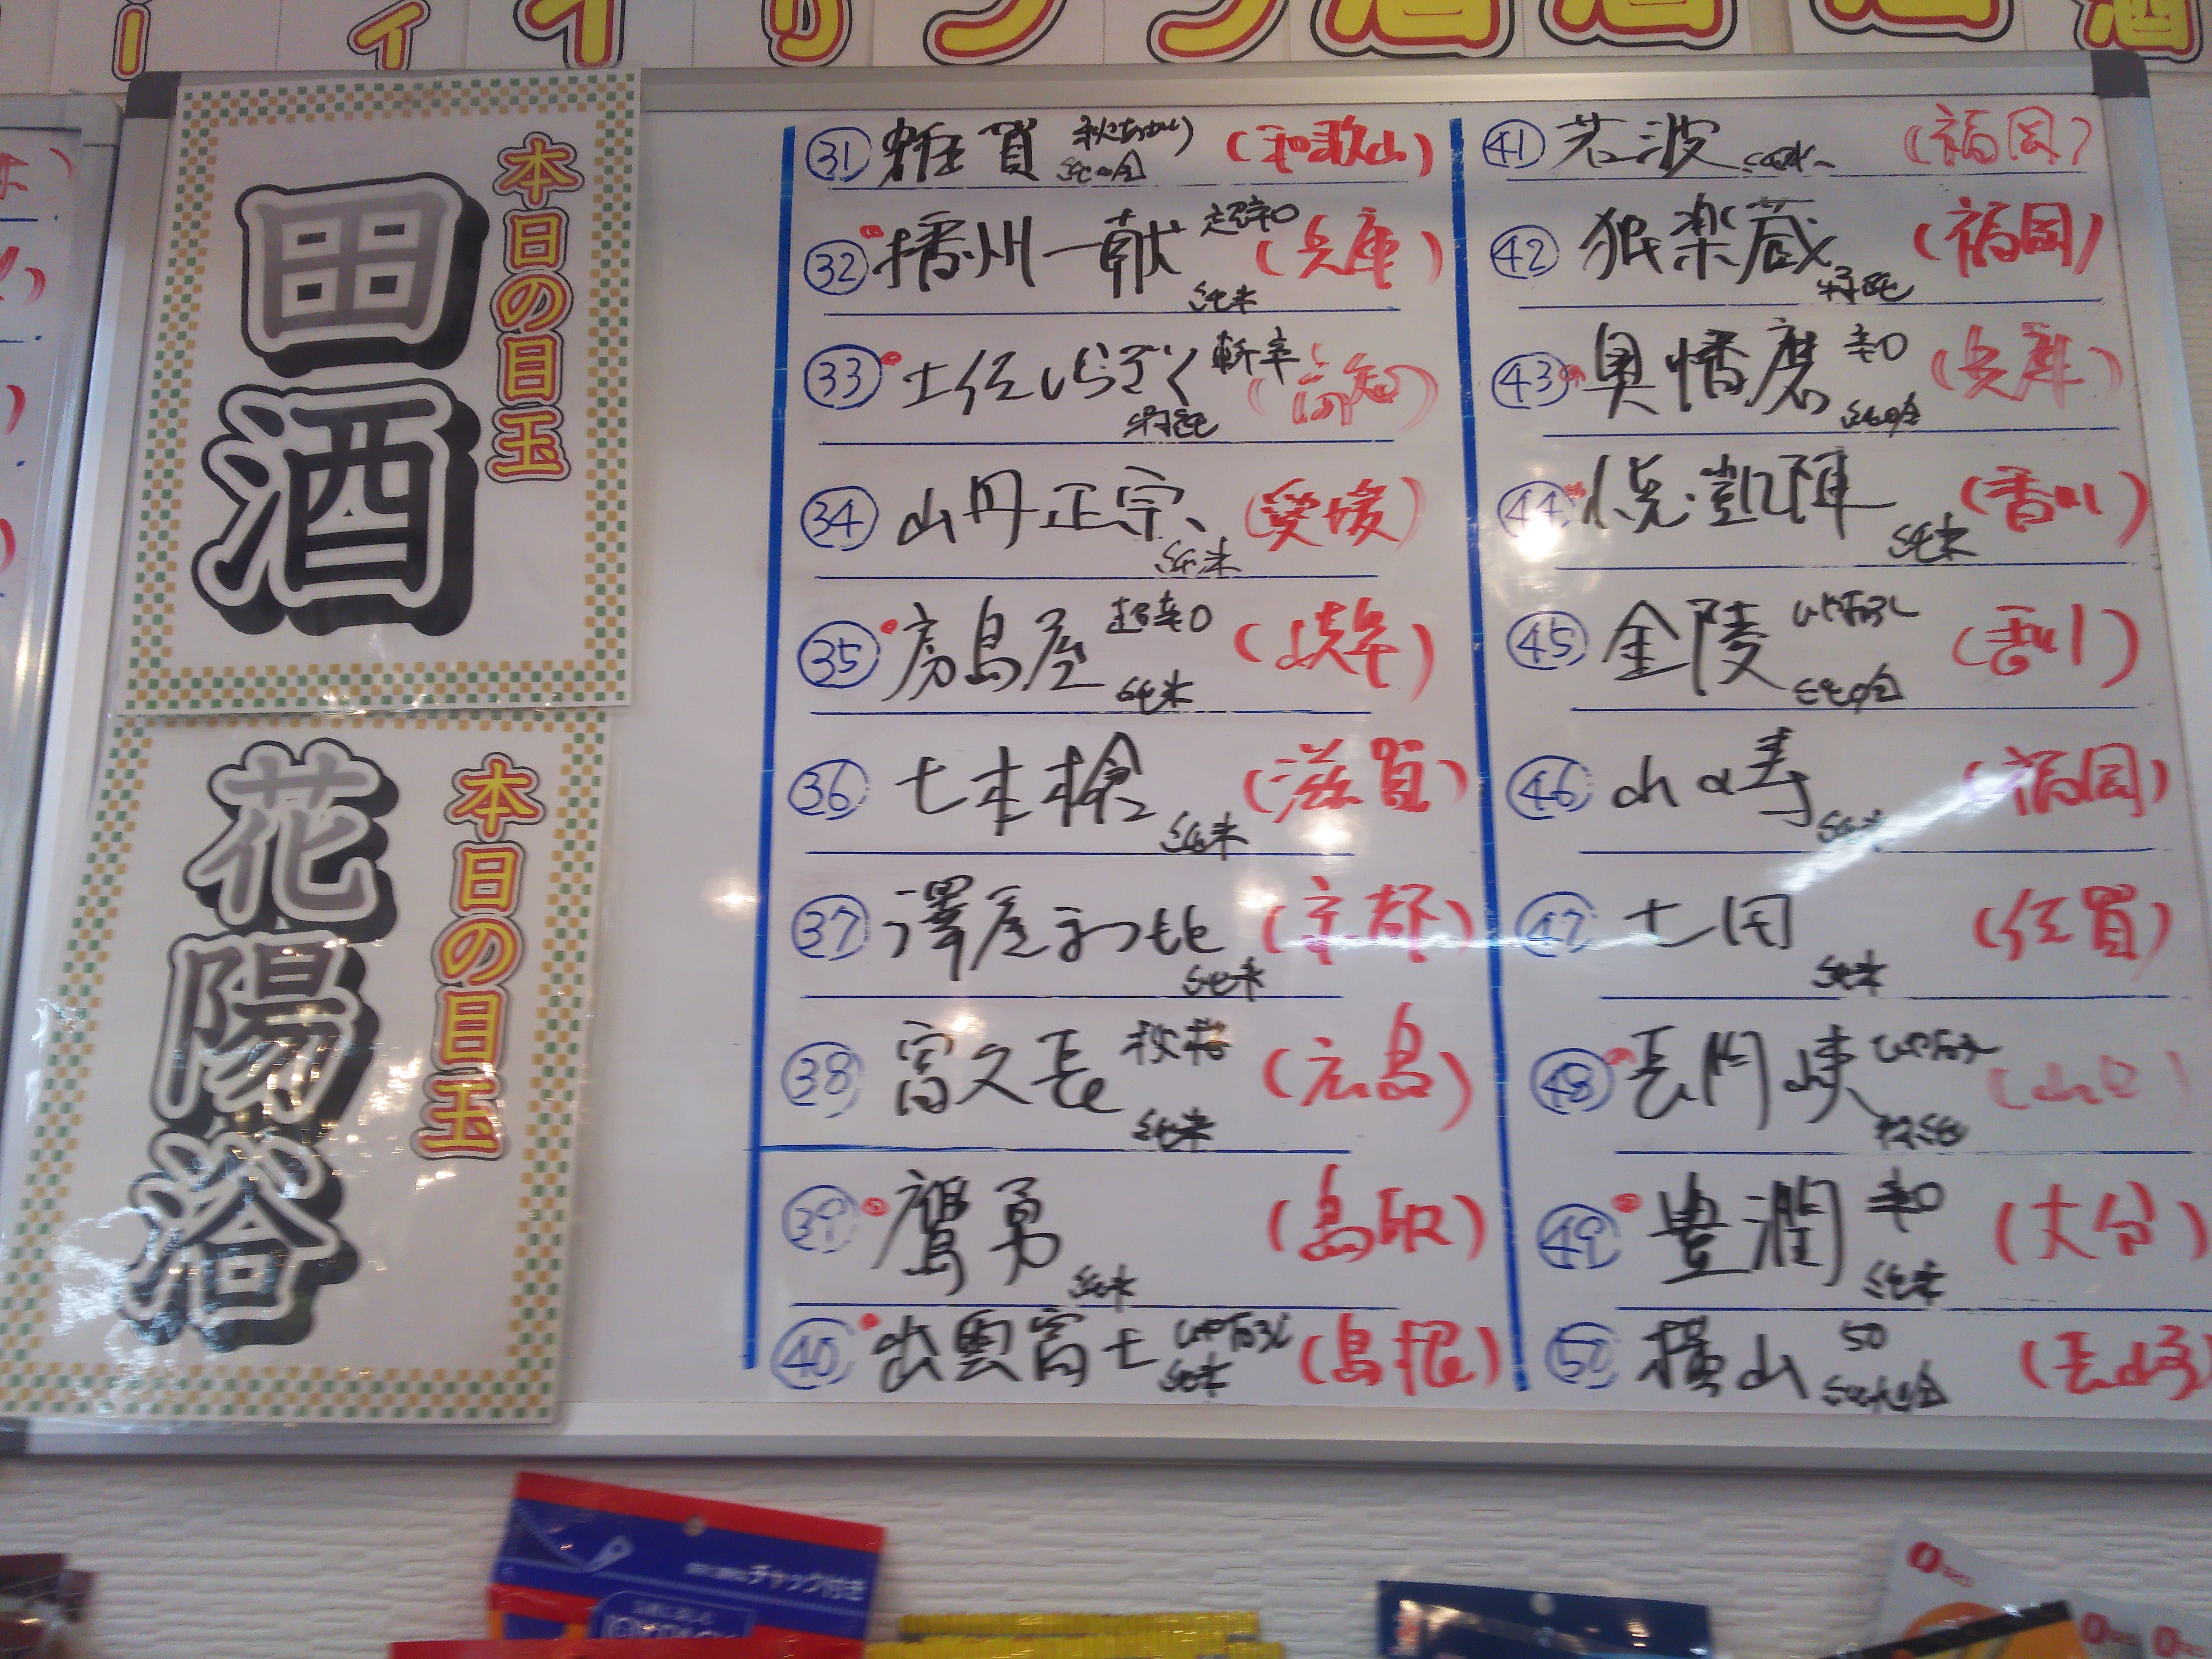 本日の目玉
田酒
本日の目玉
花陽浴
㉛ 雑賀 秋あがり 純吟 (和歌山)
㉜ 播州一献 超辛口 純米 (兵庫)
㉝ 土佐しらぎく 斬辛 特純 (高知)
㉞ 山丹正宗 純米 (愛媛)
㉟ 房島屋 超辛口 純米 (岐阜)
㊱ 七本槍 純米 (滋賀)
㊲ 澤屋まつもと 純米 (京都)
㊳ 富久長 秋桜 純米 (広島)
㊴ 鷹勇 純米 (鳥取)
㊵ 出雲富士 ひやおろし 純米 (島根)
㊶ 若波 純米 (福岡)
㊷ 独楽蔵 特純 (福岡)
㊸ 奥播磨 辛口 純吟 (兵庫)
㊹ 悦凱陣 純米 (香川)
㊺ 金陵 ひやおろし 純吟 (香川)
㊻ 山の寿 純米 (福岡)
㊼ 七田 純米 (佐賀)
㊽ 長門峡 ひやおろし 特純 (山口)
㊾ 豊潤 辛口 純米 (大分)
㊿ 横山 50 純大吟 (長崎)
チャック付き